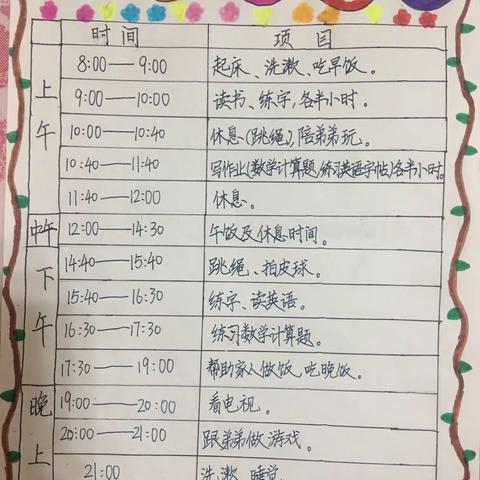 时间 项目
上午
8:00——9:00 起床、洗漱、吃早饭。
9:00——10:00 读书、练字,各半小时。
10:00——10:40 休息(跳绳),陪弟弟玩。
10:40——11:40 写作业(数学计算题,练习英语字帖)各半小时。
11:40——12:00 休息。
中午 12:00——14:30 午饭及休息时间。
下午
14:40——15:40 跳绳、拍皮球。
15:40——16:30 练字、读英语。
16:30——17:30 练习数学计算题。
17:30——19:00 帮助家人做饭,吃晚饭。
晚上
19:00——20:00 看电视。
20:00——21:00 跟弟弟做游戏。
21:00 洗漱、睡觉